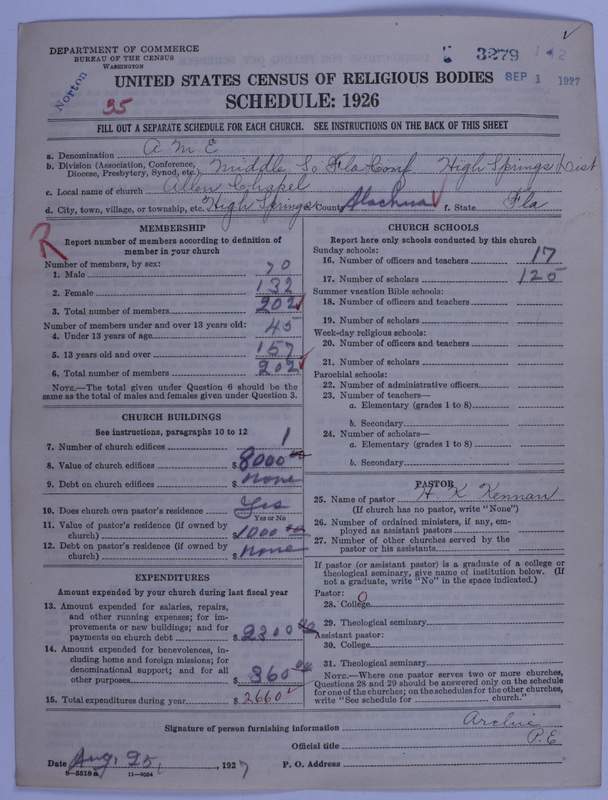 DEPARTMENT OF COMMERCE
BUREAU OF THE CENSUS
WASHINGTON
Norton
3279 142
SEP 1 1927
35
UNITED STATES CENSUS OF RELIGIOUS BODIES
SCHEDULE: 1926
FILL OUT A SEPARATE SCHEDULE FOR EACH CHURCH. SEE INSTRUCTIONS ON THE BACK OF THIS SHEET
a. Denomination A M E
b. Division (Association, Conference, Diocese, Presbytery, Synod, etc.) Middle So Fla Conf High Springs Dist
c. Local name of church Allen Chapel
d. City, town, village, or township, etc. High Springs County Alachua f. State Fla
R
MEMBERSHIP
Report number of members according to definition of
member in your church
Number of members, by sex:
1. Male 70
2. Female 132
3. Total number of members 202
Number of members under and over 13 years old:
4. Under 13 years of age 45
5. 13 years old and over 157
6. Total number of members 202
NOTE.—The total given under Question 6 should be the
same as the total of males and females given under Question 3.
CHURCH BUILDINGS
See instructions, paragraphs 10 to 12
7. Number of church edifices 1
8. Value of church edifices $ 8000 00
9. Debt on church edifices $ None
10. Does church own pastor's residence Yes
Yes or No
11. Value of pastor's residence (if owned by
church) $ 1000 00
12. Debt on pastor's residence (if owned by
church) $ None
EXPENDITURES
Amount expended by your church during last fiscal year
13. Amount expended for salaries, repairs,
and other running expenses; for im-
provements or new buildings; and for
payments on church debt $ 2300 00
14. Amount expended for benevolences, in-
cluding home and foreign missions; for
denominational support; and for all
other purposes $ 360 00
15. Total expenditures during year $ 2660
CHURCH SCHOOLS
Report here only schools conducted by this church
Sunday schools:
16. Number of officers and teachers 17
17. Number of scholars 125
Summer vacation Bible schools:
18. Number of officers and teachers
19. Number of scholars
Week-day religious schools:
20. Number of officers and teachers
21. Number of scholars
Parochial schools:
22. Number of administrative officers
23. Number of teachers—
a. Elementary (grades 1 to 8)
b. Secondary
24. Number of scholars—
a. Elementary (grades 1 to 8)
b. Secondary
PASTOR
25. Name of pastor H K Kennan
(If church has no pastor, write "None")
26. Number of ordained ministers, if any, em-
ployed as assistant pastors
27. Number of other churches served by the
pastor or his assistants
If pastor (or assistant pastor) is a graduate of a college or
theological seminary, give name of institution below. (If
not a graduate, write "No" in the space indicated.)
Pastor: 0
28. College
29. Theological seminary
Assistant pastor:
30. College
31. Theological seminary
NOTE.—Where one pastor serves two or more churches,
Questions 28 and 29 should be answered only on the schedule
for one of the churches; on the schedules for the other churches,
write "See schedule for church."
Signature of person furnishing information Archie
Official title P.E
Date Aug. 25, 1927 P. O. Address
9-5518a 11-9034